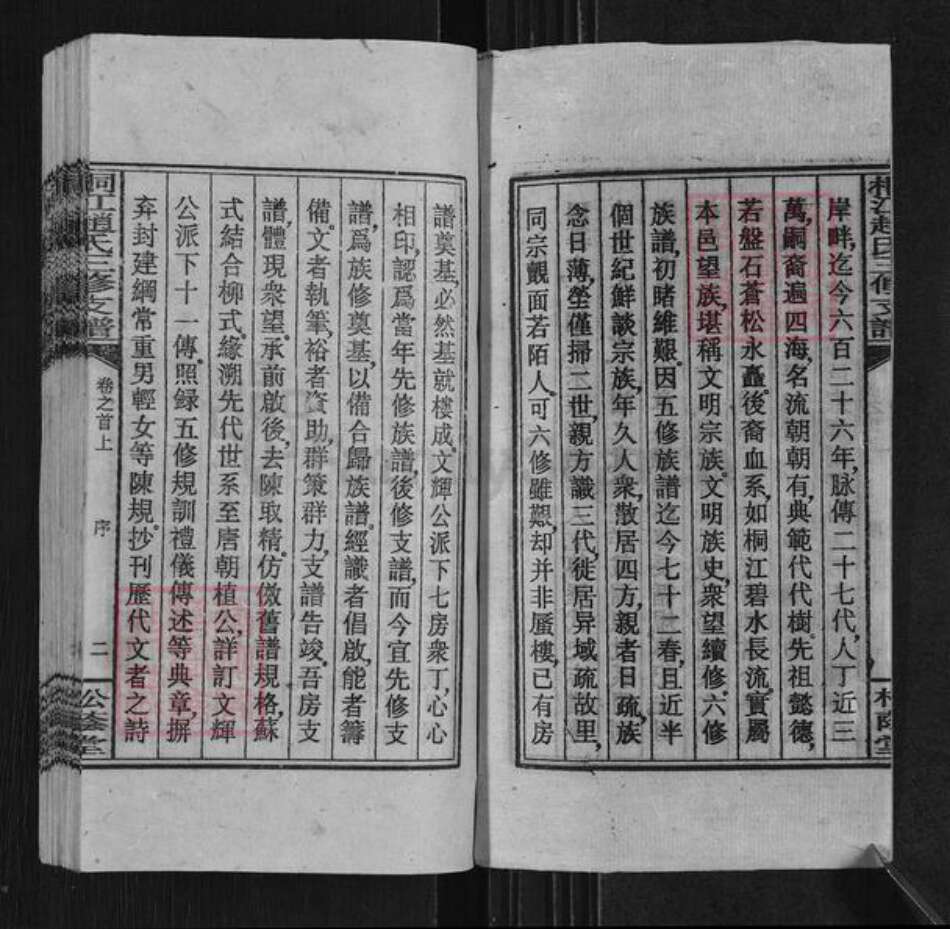 岸畔,迄今六百二十六年,脉傳二十七代,人丁近三
萬,嗣裔遍四海,名流朝朝有,典範代代樹。先祖懿德,
若盤石蒼松永矗。後裔血系,如桐江碧水長流。實屬
本邑望族,堪稱文明宗族。文明族史,衆望續修。六修
族譜,初睹維艱。因五修族譜迄今七十二春,且近半
個世紀鮮談宗族,年久人衆,散居四方,親者日疏,族
念日薄,塋僅掃二世,親方識三代,徙居异域疏故里,
同宗觀面若陌人。可六修雖艱,却并非蜃樓,已有房
譜奠基,必然基就樓成。文輝公派下七房衆丁,心心
相印,認爲當年先修族譜,後修支譜,而今宜先修支
譜,爲族修奠基,以備合歸,族譜。經識者倡啟,能者籌
備。文者執筆,裕者資助,群策群力,支譜告竣。吾房支
譜,體現衆望。承前啟後,去陳取精。仿傚舊譜規格,蘇
式結合柳式。緣溯先代世系至唐朝植公,詳訂文輝
公派下十一傳。照録五修規訓禮儀傳述等典章,摒
弃封建綱常重男輕女等陳規。抄刊歷代文者之詩
桐江趙氏三修支譜
卷之首上
序
二